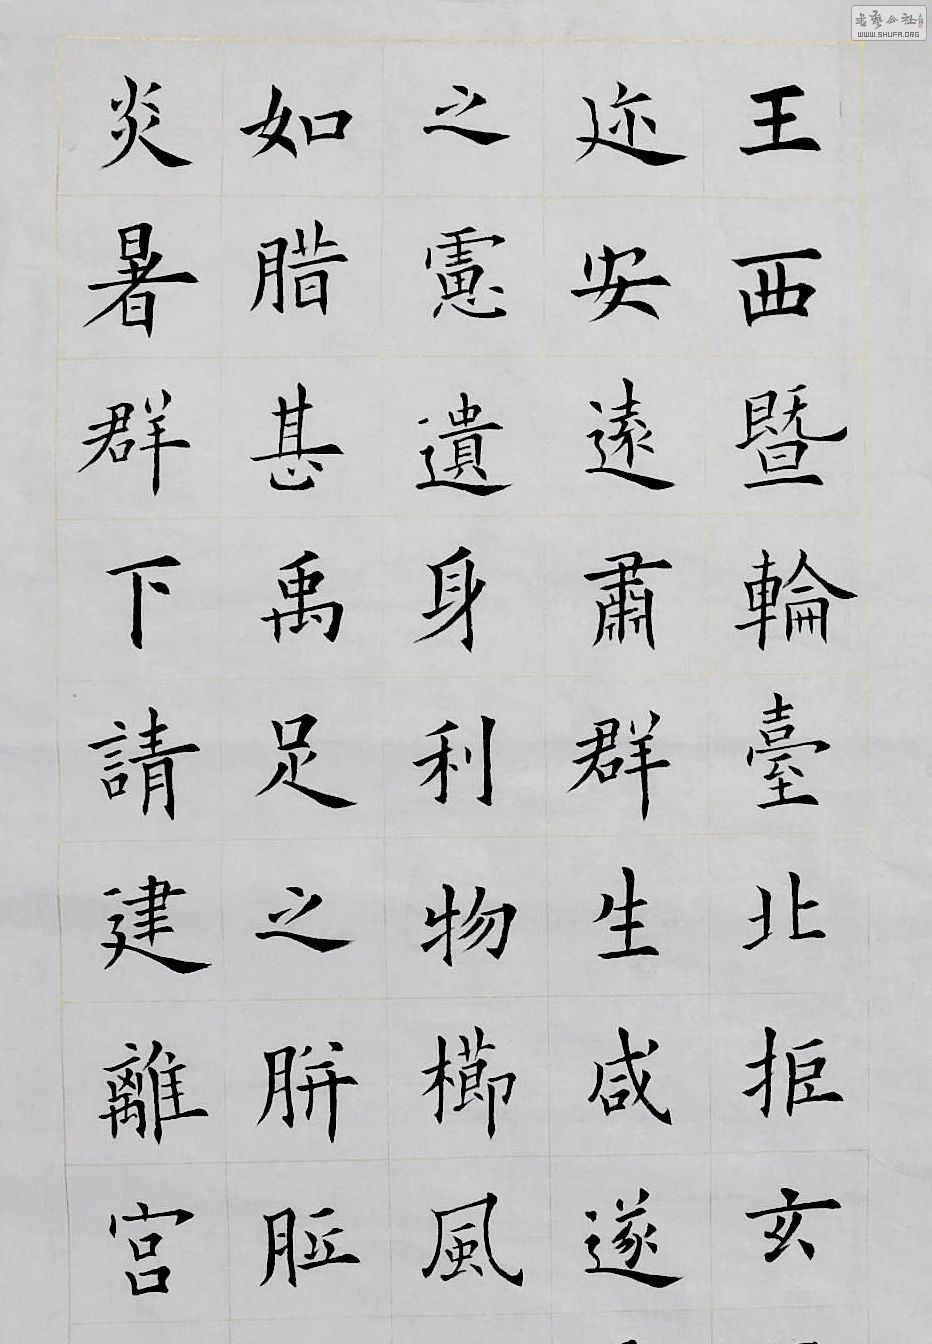 王西暨輪臺北拒玄
迩安遠肅群生咸遂
之慮遺身利物櫛風
如腊甚禹足之胼胝
炎暑群下請建離宫
書藝公社
WWW.SHUFA.ORG